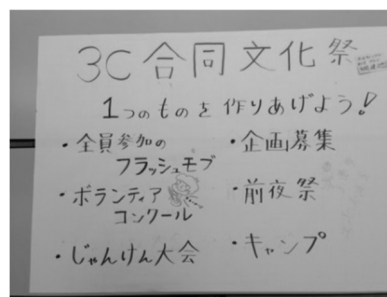 3C合同文化祭
1つのものを作りあげよう!
・全員参加の
フラッシュモブ
・ボランティア
コンクール
・じゃんけん大会
・企画募集
・前夜祭
・キャンプ